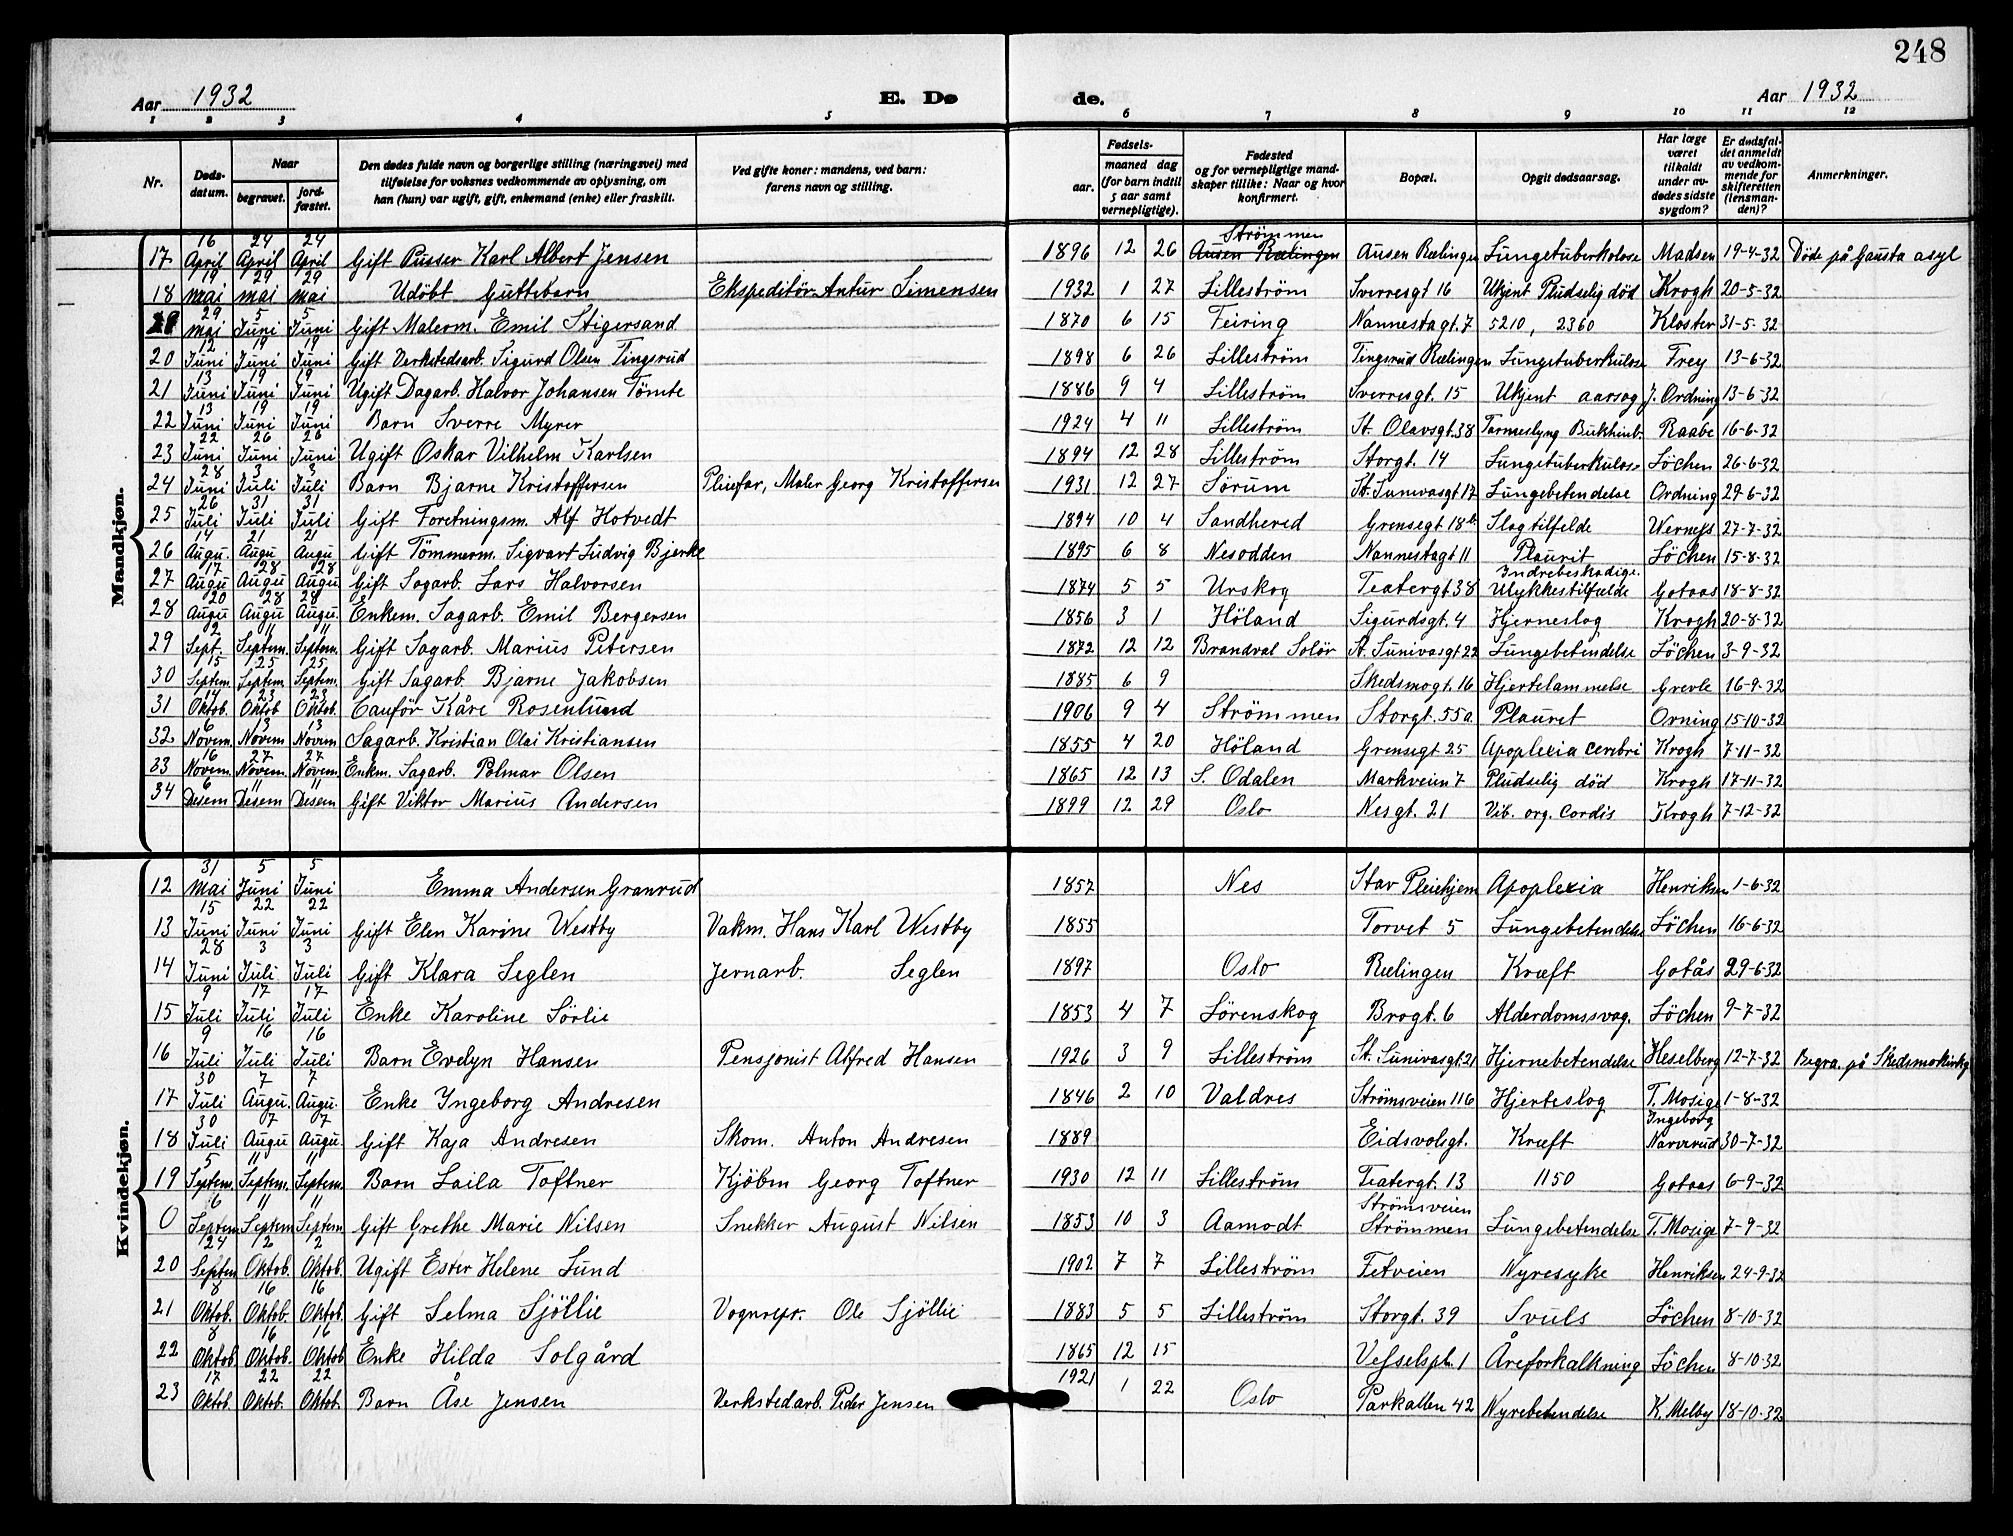 248
Aar 1932 E. Dø de. Aar 1932
1 2 3 4 5 6 7 8 9 10 11 12
Nr. Døds-datum. Naar begravet. jord-fæstet. Den dødes fulde navn og borgerlige stilling (næringsvei) med tilføielse for voksnes vedkommende av oplysning, om han (hun) var ugift, gift, enkemand (enke) eller fraskilt. Ved gifte koner: mandens, ved barn: farens navn og stilling. Fødsels- aar. maaned dag (for barn indtil 5 aar samt vernepligtige). Fødested og for vernepligtige mand-skaper tillike: Naar og hvor konfirmert. Bopæl. Opgit dødsaarsag. Har læge været tilkaldt under av-dødes sidste sygdom? Er dødsfal-det anmeldt av vedkom-mende for skifteretten (lensman-den)? Anmerkninger.
Mandkjøn.
17 16 April 24 April 24 April Gift Pusser Karl Albert Jensen 1896 12 26 Strömmen Ausen Rælingen Ausen Rælingen Lungetuberkolose Madsen 19-4-32 Döde på Gausta asyl
18 19 mai 29 mai 29 mai Udöbt Guttebarn Ekspeditör Artur Simensen 1932 1 27 Lilleström Sverresgt 16 Ukjent Pludselig död Krogh 20-5-32
19 29 mai 5 Juni 5 Juni Gift Malerm. Emil Stigersand 1870 6 15 Feiring Nannestagt. 7 5210, 2360 Kloster 31-5-32
20 12 Juni 19 Juni 19 Juni Gift Verkstedsarb. Sigurd Olsen Tingsrud 1898 6 26 Lilleström Tingsrud Rælingen Lungetuberkulose Frey 13-6-32
21 13 Juni 19 Juni 19 Juni Ugift Dagarb. Halvor Johansen Tömte 1886 9 4 Lilleström Sverresgt. 15 Ukjent aarsag J. Ordning 13-6-32
22 13 Juni 19 Juni 19 Juni Barn Sverre Myrer 1924 4 11 Lilleström St. Olavsgt. 38 Tarmeslyng Bukhinb. Raabe 16-6-32
23 22 Juni 26 Juni 26 Juni Ugift Oskar Vilhelm Karlsen 1894 12 28 Lilleström Storgt. 14 Lungetuberkulose Löchen 26-6-32
24 28 Juni 3 Juli 3 Juli Barn Bjarne Kristoffersen Pleiefar, Maler Georg Kristoffersen 1931 12 27 Sörum St. Sunivasgt 17 Lungebetendelse Ordning 29-6-32
25 26 Juli 31 Juli 31 Juli Gift Forretningsm. Alf Hotvedt 1894 10 4 Sandhered Grensegt 18b Slagtilfelde Wernejs 27-7-32
26 14 Augu. 21 Augu 21 Augu Gift Tömmerm. Sigvart Ludvig Bjerke 1895 6 8 Nesodden Nannestagt 11 Plaurit Löchen 15-8-32
27 17 Augu 28 Augu 28 Augu Gift Sagarb. Lars Halvorsen 1874 5 5 Urskog Teatergt. 38 Indrebeskadige. Ulykkestilfelde Gotaas 18-8-32
28 20 Augu 28 Augu 28 Augu. Enkem. Sagarb. Emil Bergersen 1856 3 1 Höland Sigurdsgt. 4 Hjerneslag Krogh 20-8-32
29 2 Sept. 11 Septem. 11 Septem. Gift Sagarb. Marius Petersen 1872 12 12 Brandval Solör St. Sunivasgt 22 Lungebetendelse Löchen 3-9-32
30 15 Septem. 25 Septem. 25 Septem. Gift Sagarb Bjarne Jakobsen 1885 6 9 Skedsmogt. 16 Hjertelammelse Grevle 16-9-32
31 14 Oktob. 23 Oktob 23 Oktob. Cauför Kåre Rosenlund 1906 9 4 Strömmen Storgt. 55a Plauret Orning 15-10-32
32 6 Novem. 13 Novem 13 Novem Sagarb. Kristian Olai Kristiansen 1855 4 20 Höland Grensegt 25 Apoplexia cerebri Krogh 7-11-32
33 16 Novem. 27 Novem. 27 Novem. Enkm. Sagarb. Polmar Olsen 1865 12 13 S. Odalen Markveien 7 Pludselig död Krogh 17-11-32
34 6 Desem 11 Desem 11 Desem Gift Viktor Marius Andersen 1899 12 29 Oslo Nesgt. 21 Vib. org. cordis Krogh 7-12-32
Kvindekjøn.
12 31 Mai 5 Juni 5 Juni Emma Andersen Granrud 1857 Nes Stav Pleiehjem Apoplexia Henriksen 1-6-32
13 15 Juni 22 Juni 22 Juni Gift Elen Karine Westby Vakm. Hans Karl Westby 1855 Torvet 5 Lungebetendelse Löchen 16-6-32
14 28 Juni 3 Juli 3 Juli Gift Klara Seglen Jernarb. Seglen 1897 Oslo Rælingen Kræft Gotås 29-6-32
15 9 Juli 17 Juli 17 Juli Enke Karoline Sörlie 1853 4 7 Lörenskog Brogt. 6 Alderdomssvag. Löchen 9-7-32
16 9 Juli 16 Juli 16 Juli Barn Evelyn Hansen Pensjonist Alfred Hansen 1926 3 9 Lilleström St. Sunivasgt. 21 Hjernebetendelse Heselberg 12-7-32 Begra. på Skedsmokirkg
17 30 Juli 7 Augu. 7 Augu. Enke Ingeborg Andresen 1846 2 10 Valdres Strömsveien 116 Hjerteslag T. Mosige 1-8-32
18 30 Juli 7 Augu 7 Augu. Gift Kaja Andresen Skom. Anton Andresen 1889 Eidsvolsgt. Kræft Ingeborg Narverud 30-7-32
19 5 Septem. 11 Septem. 11 Septem. Barn Laila Toftner Kjöbm Georg Toftner 1930 12 11 Lilleström Teatergt. 13 1150 Gotaas 6-9-32
0 6 Septem 11 Septem 11 Septem Gift Grethe Marie Nilsen Snekker August Nilsen 1853 10 3 Aamodt Strömsveien Strömmen Lungebetendelse T. Mosige 7-9-32
20 24 Septem 2 Oktob. 2 Oktob. Ugift Ester Helene Lund 1902 7 7 Lilleström Fetveien Nyresyke Henriksen 24-9-32
21 8 Oktob. 16 Oktob. 16 Oktob. Gift Selma Sjöllie Vognrepr. Ole Sjöllie 1883 5 5 Lilleström Storgt. 39 Svuls Löchen 8-10-32
22 8 Oktob 16 Oktob. 16 Oktob Enke Hilda Solgård 1865 12 15 Vesselspl. 1 Åreforkalkning Löchen 8-10-32
23 17 Oktob. 22 Oktob. 22 Oktob. Barn Åse Jensen Verkstedarb. Peder Jensen 1921 1 22 Oslo Parkalleen 42 Nyrebetendelse K. Melby 18-10-32